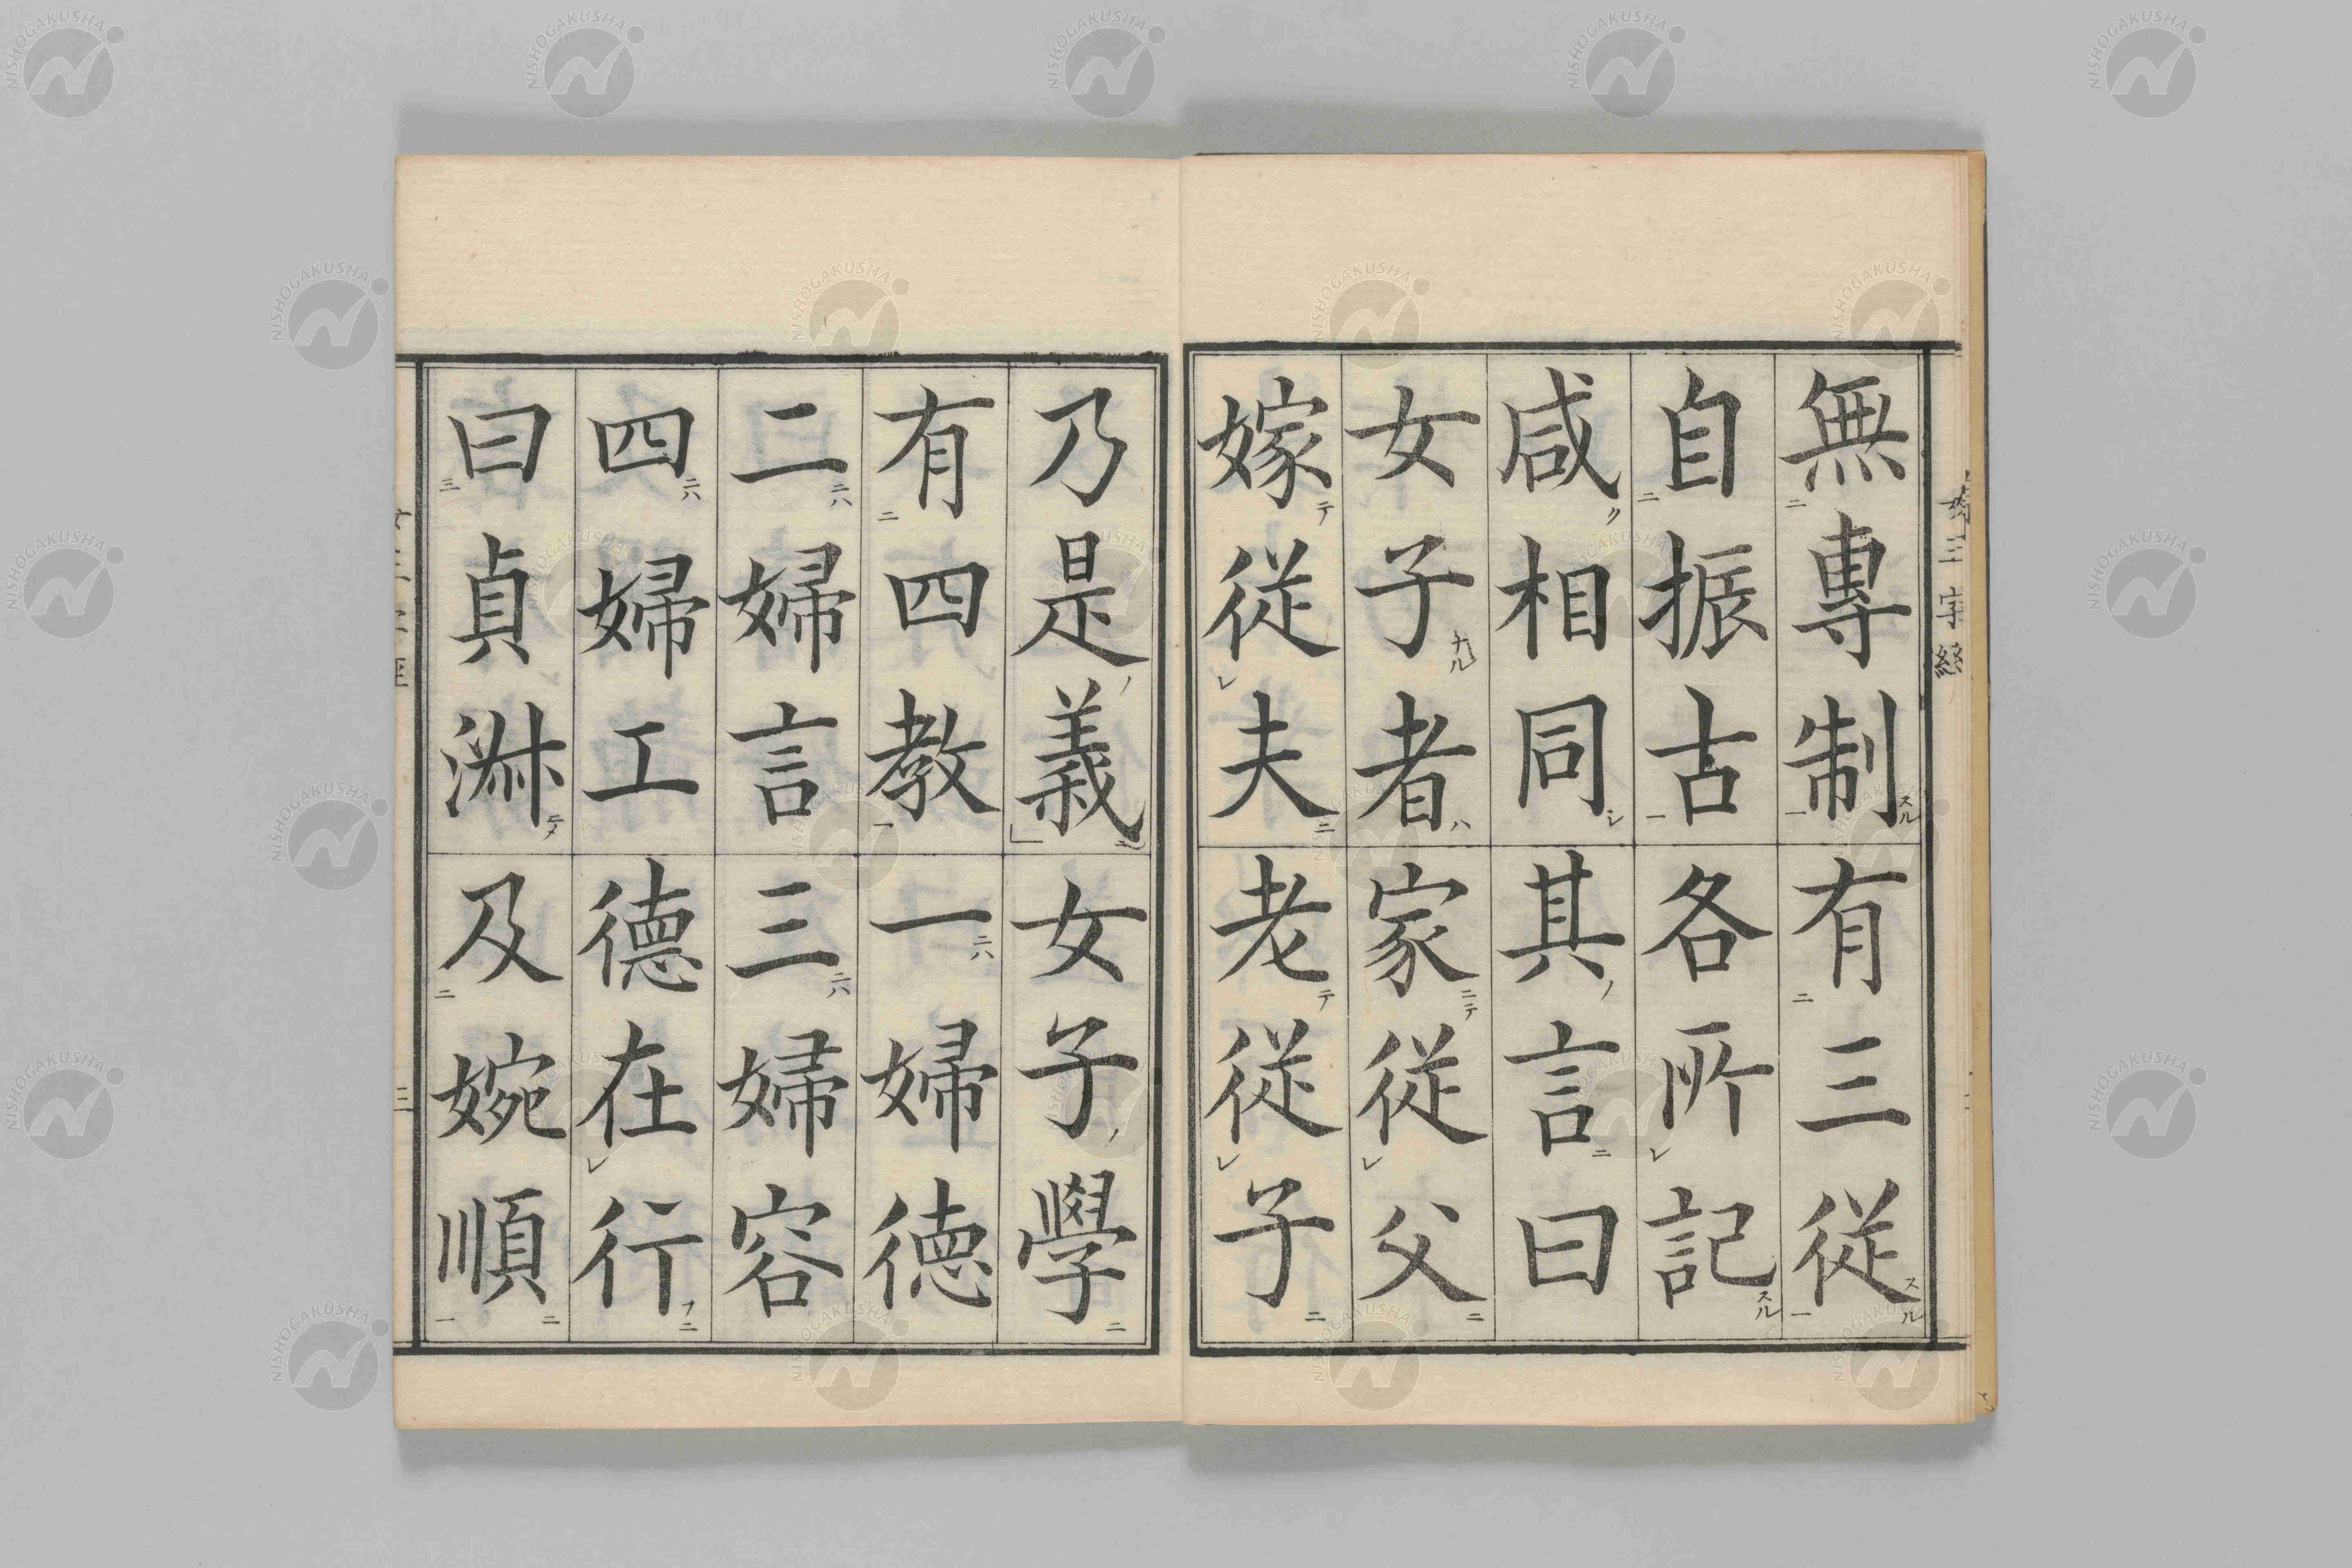 無專制有三從
自振古各所記
咸相同其言曰
女子者家從父
嫁從夫老從子
乃是義女子學
有四教一婦德
二婦言三婦容
四婦工德在行
曰貞淑及婉順
女三字經
三
NISHOGAKUSHA